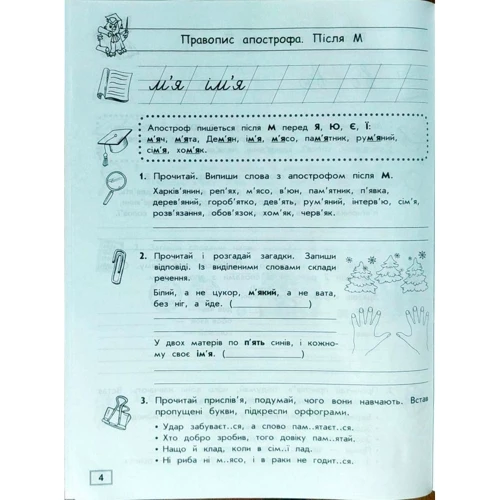 Правопис апострофа. Після М
м'я ім'я
Апостроф пишеться після М перед Я, Ю, Є, Ї:
м'яч, м'ята, Дем'ян, ім'я, м'ясо, пам'ятник, рум'яний,
сім'я, хом'як.
1. Прочитай. Випиши слова з апострофом після М.
Харків'янин, реп'ях, м'ясо, в'юн, пам'ятник, п'явка,
дерев'яний, горобʼятко, дев'ять, рум'яний, інтерв'ю, сім'я,
розв'язання, обов'язок, хом'як, черв'як.
2. Прочитай і розгадай загадки. Запиши
відповіді. Із виділеними словами склади
речення.
Білий, а не цукор, м'який, а не вата,
без ніг, а йде. (
)
У двох матерів по п'ять синів, і кожно-
му своє ім'я. (
)
3. Прочитай прислів'я, подумай, чого вони навчають. Встав
пропущені букви, підкресли орфограми.
• Удар забуваєт..ся, а слово пам..ятаєт..ся.
• Хто добро зробив, того довіку пам..ятай.
• Нащо й клад, коли в сім..ї лад.
• Ні риба ні м..ясо, і в раки не годит..ся.
4